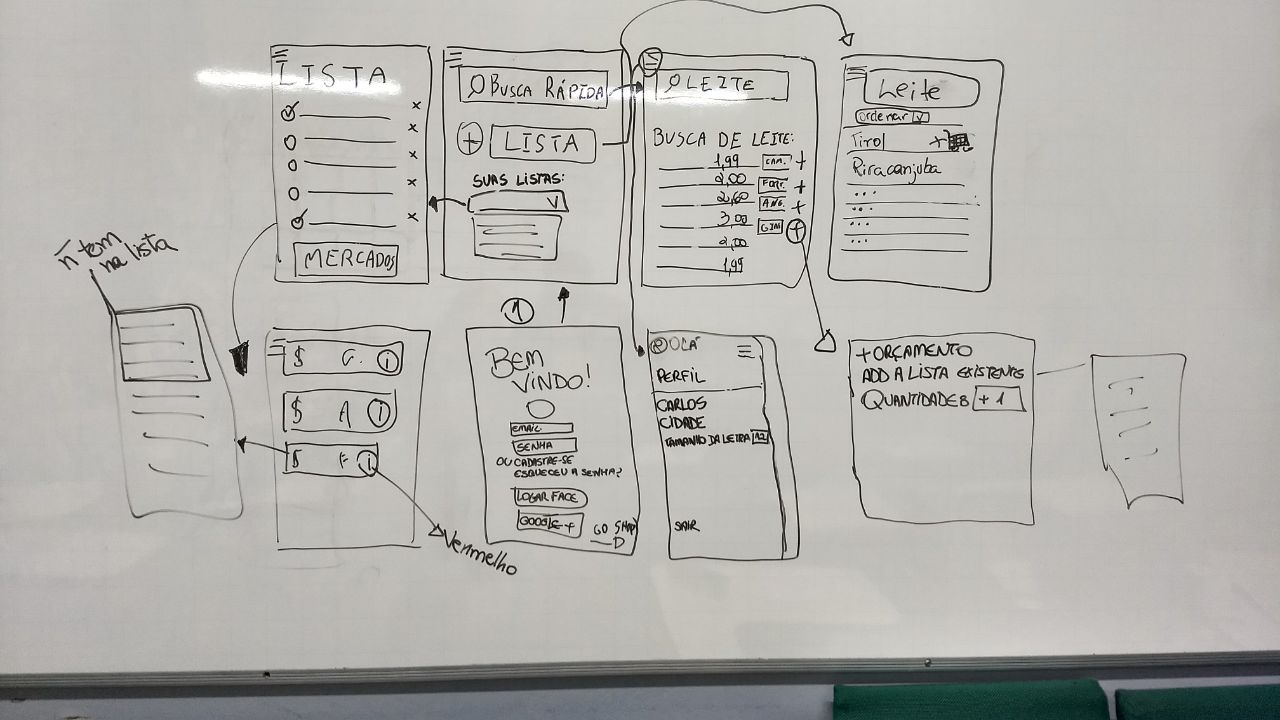 LISTA
MERCADOS
BUSCA RÁPIDA
+ LISTA
SUAS LISTAS:
LEITE
BUSCA DE LEITE:
1,99 CAM. +
2,00 FORT. +
2,60 ANG. +
3,00 GIM +
2,00
1,99
Leite
Ordenar V
Tirol +
Piracanjuba
ñ tem
na lista
$ G. i
$ A i
$ F i
Vermelho
1
BEM
VINDO!
EMAIL
SENHA
OU CADASTRE-SE
ESQUECEU A SENHA?
LOGAR FACE
GOOGLE +
GO SHOP
OLÁ
PERFIL
CARLOS
CIDADE
TAMANHO DA LETRA 12
SAIR
+ ORÇAMENTO
ADD A LISTA EXISTENTES
QUANTIDADES + 1